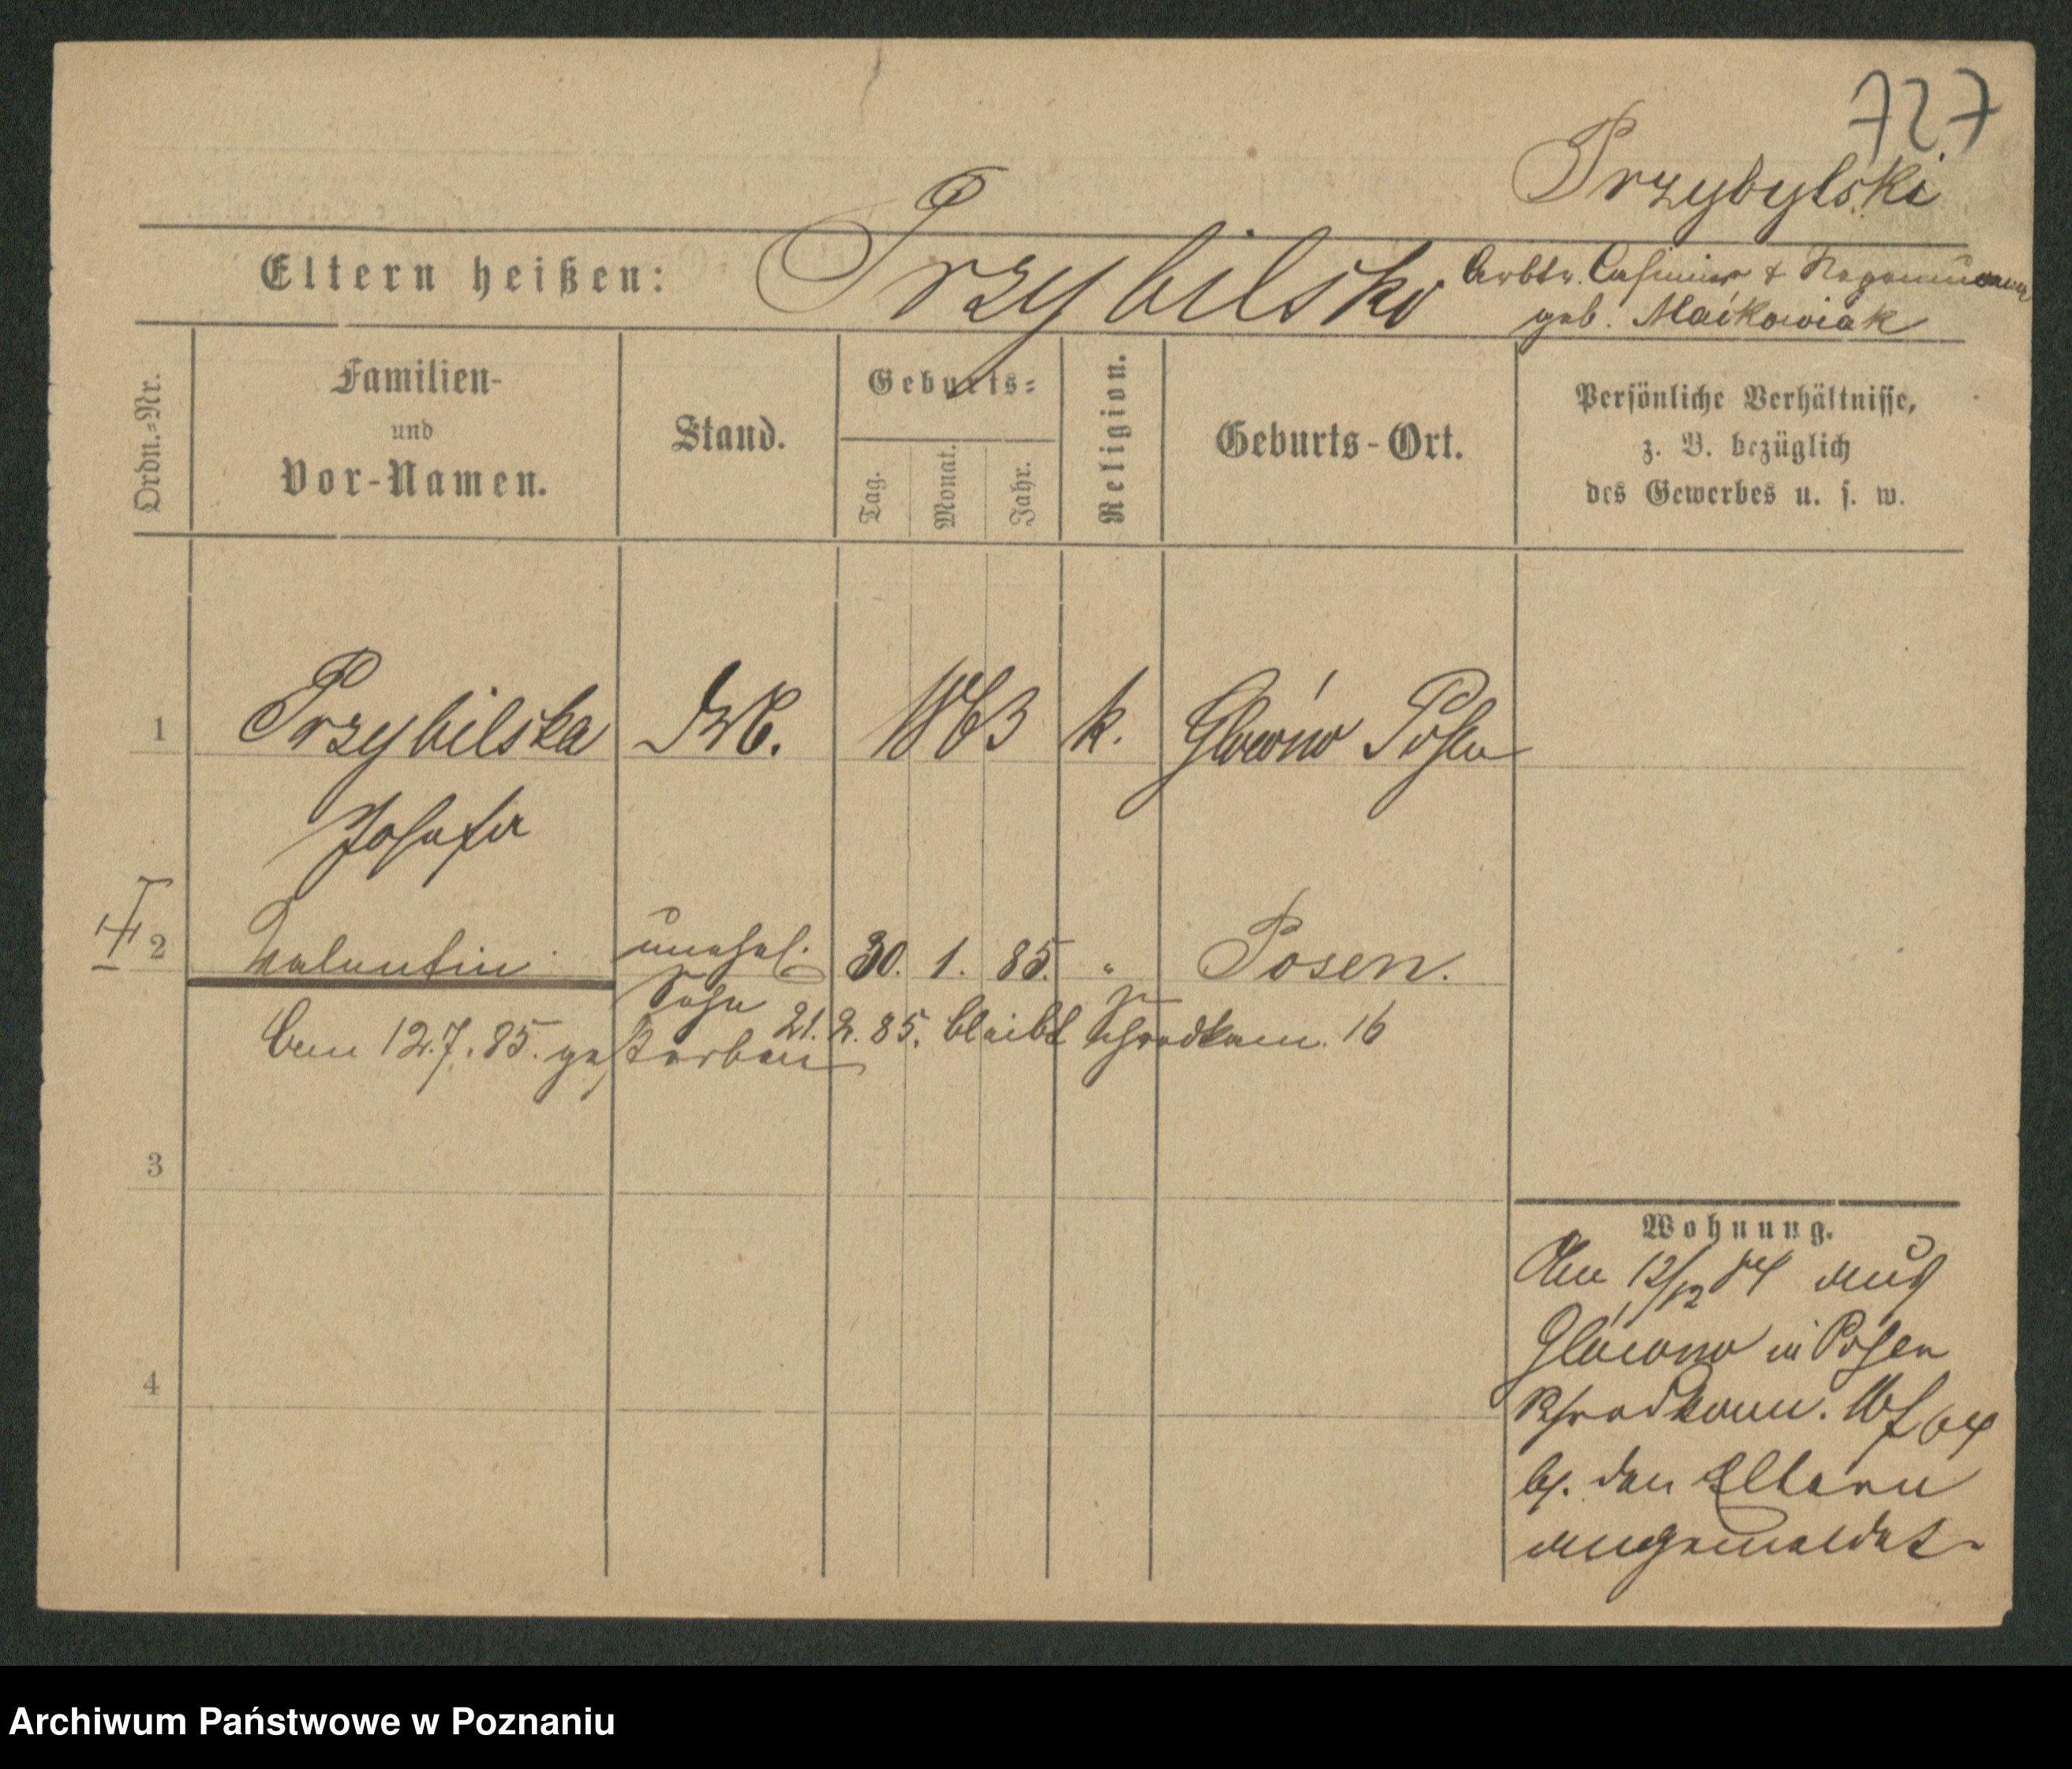 727
Przybylski
Eltern heißen: Przybilski Arbtr. Casimir &
geb. Maćkowiak
Ordn.=Nr.
Familien-
und
Vor-Namen.
Stand.
Geburts=
Tag. Monat. Jahr.
Religion.
Geburts-Ort.
Persönliche Verhältnisse,
z. B. bezüglich
des Gewerbes u. s. w.
1 Przybilska 1863 k. Glowno Posen
Josefa
2 Valentin unehel. 30. 1. 85. " Posen.
Sohn
21. 2. 85. bleibt Schrodkam. 16
Am 12.7.85. gestorben
3
Wohnung.
Am 12/12 84 aus
Glówno in Posen
Schrodkam.
b. den Eltern
angemeldet
4
Archiwum Państwowe w Poznaniu